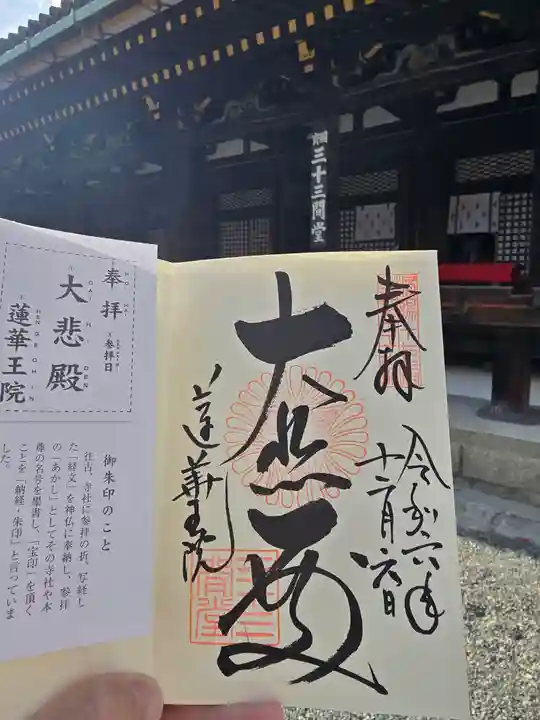 三十三間堂
奉拝
令和六年
十二月六日
大悲殿
蓮華王院
奉拝
HO HAI
①参拝日
大悲殿
DAI HI DEN
蓮華王院
RENGE OH IN
御朱印のこと
往古、寺社に参拝の折、写経し
た「経文」を神仏に奉納し、参拝
の「あかし」としてその寺社や本
尊の名号を墨書し、「宝印」を頂く
ことを「納経・朱印」と言っていま
した。